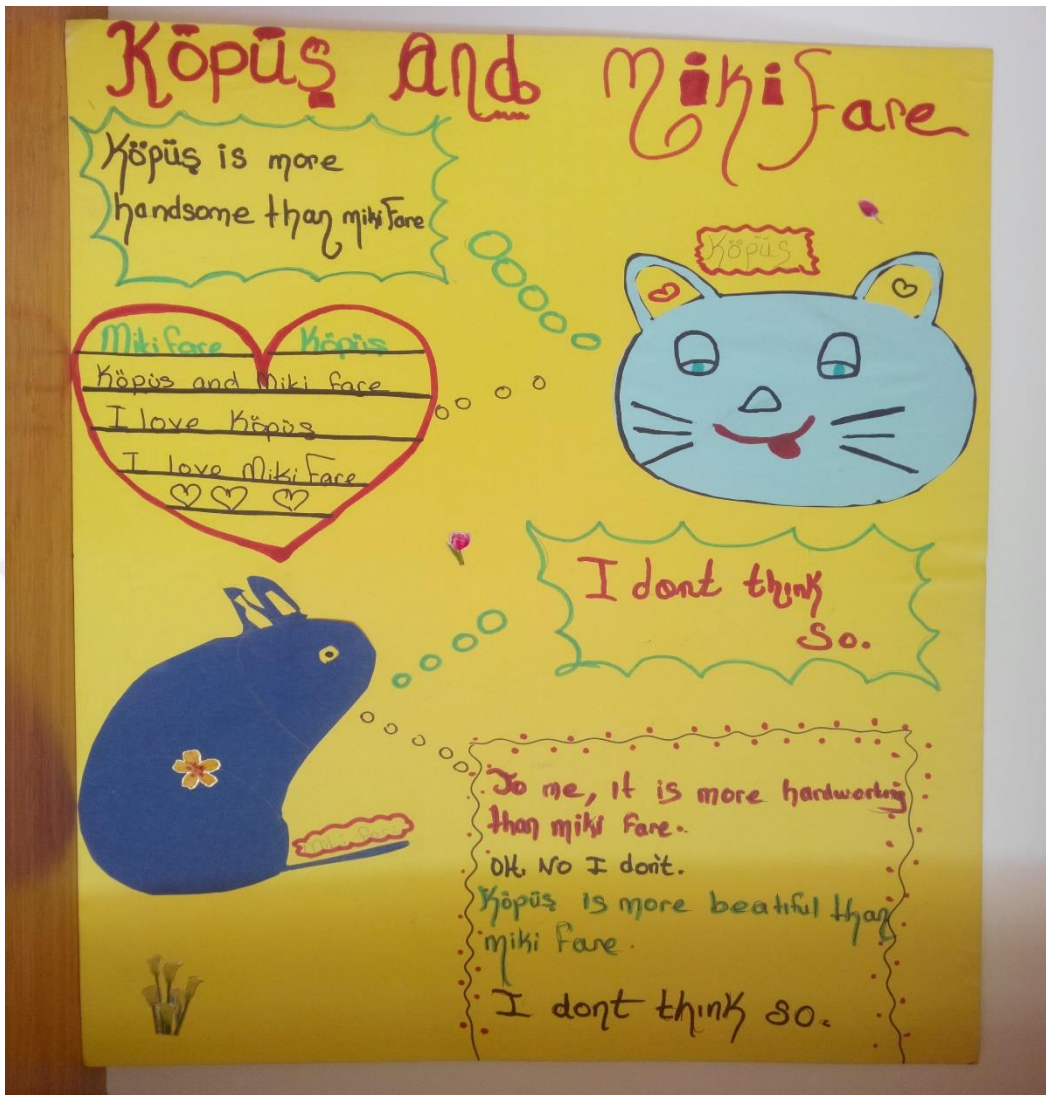 Köpüş And Miki Fare
Köpüş is more
handsome than miki Fare
Köpüş
Miki fare Köpüş
Köpüş and Miki fare
I love Köpüş
I love Miki Fare
I dont think
so.
miki fare
To me, It is more hardworking
than miki Fare.
OH. No I don't.
Köpüş is more beatıful than
miki Fare.
I dont thınk so.